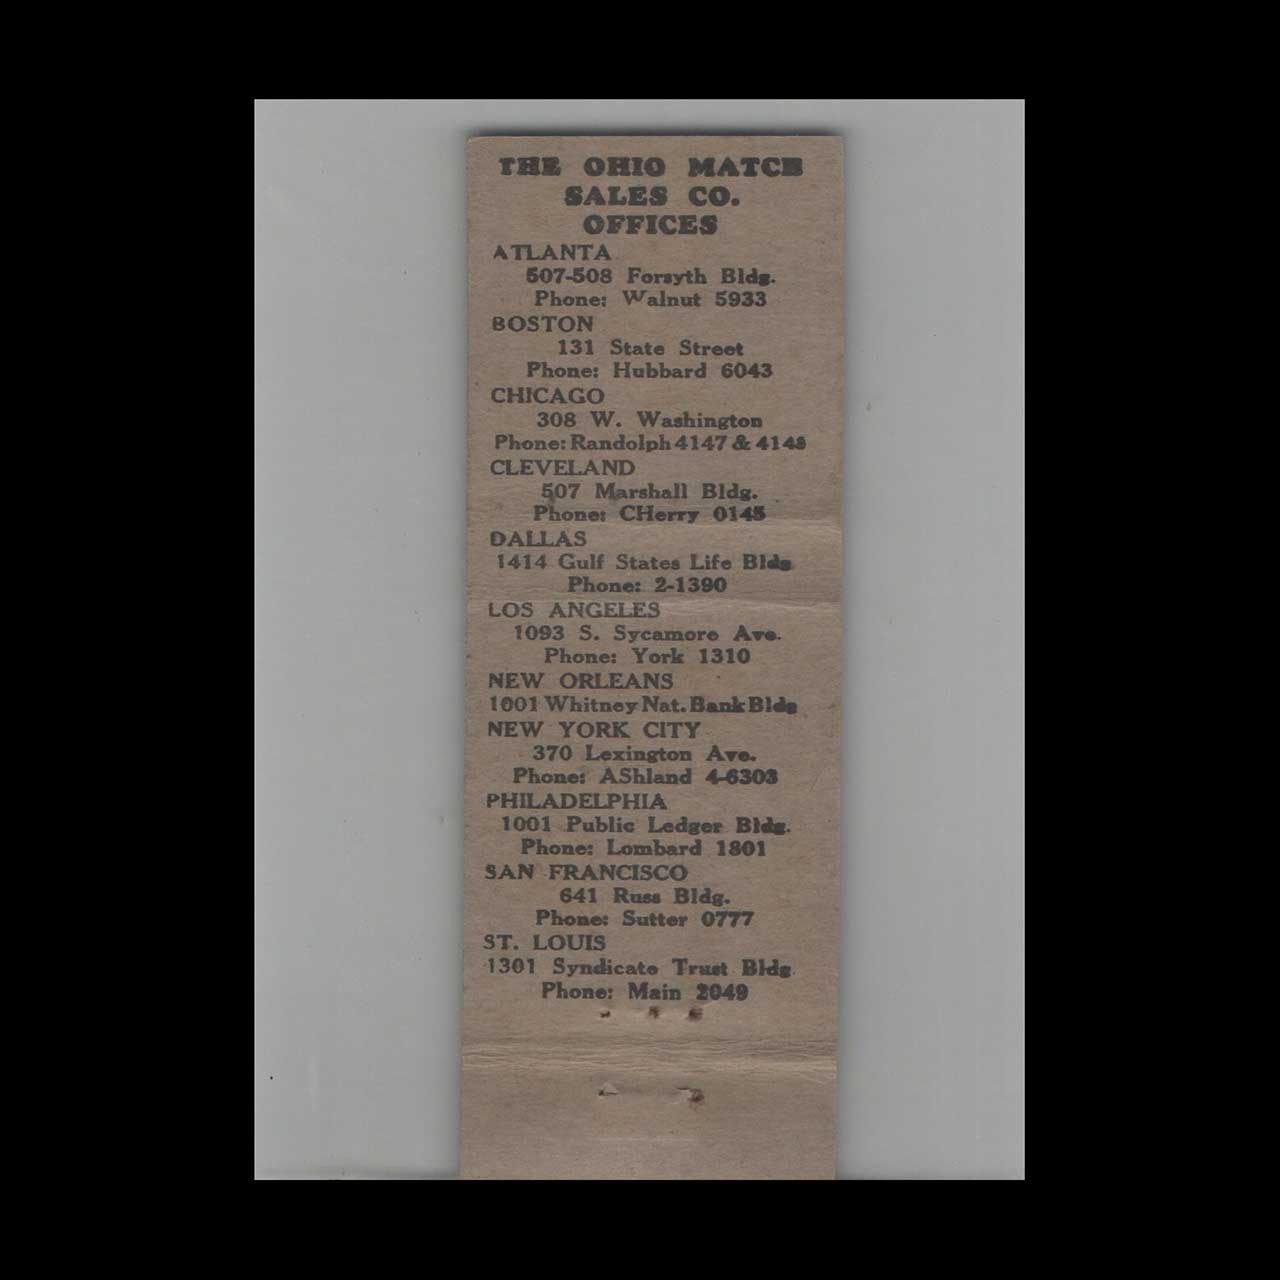 THE OHIO MATCH
SALES CO.
OFFICES
ATLANTA
507-508 Forsyth Bldg.
Phone: Walnut 5933
BOSTON
131 State Street
Phone: Hubbard 6043
CHICAGO
308 W. Washington
Phone: Randolph 4147 & 4148
CLEVELAND
507 Marshall Bldg.
Phone: CHerry 0145
DALLAS
1414 Gulf States Life Bldg
Phone: 2-1390
LOS ANGELES
1093 S. Sycamore Ave.
Phone: York 1310
NEW ORLEANS
1001 Whitney Nat. Bank Bldg
NEW YORK CITY
370 Lexington Ave.
Phone: AShland 4-6303
PHILADELPHIA
1001 Public Ledger Bldg.
Phone: Lombard 1801
SAN FRANCISCO
641 Russ Bldg.
Phone: Sutter 0777
ST. LOUIS
1301 Syndicate Trust Bldg.
Phone: Main 2049